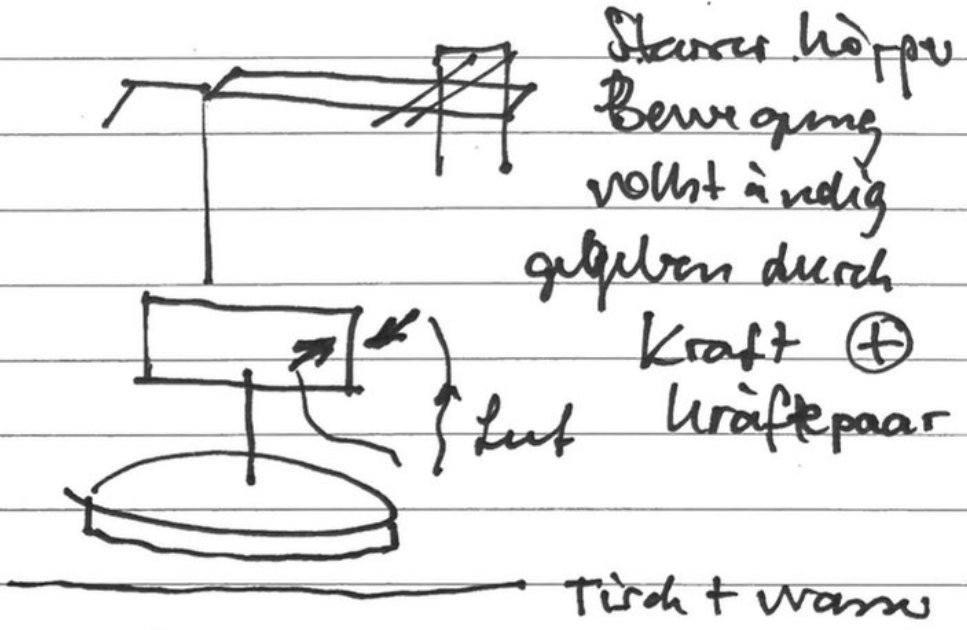 Starrer Körper
Bewegung
vollständig
gegeben durch
Kraft ⊕
Kräftepaar
Luft
Tisch + Wasser